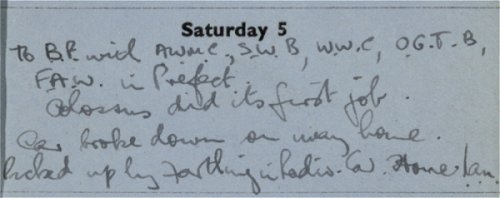 Saturday 5
To B.P. with AWMC, S.W.B, W.W.C, O.G.T.B,
F.A.W. in Prefect.
Colossus did its first job.
Car broke down on way home.
Picked up by Farthing in Radio Car. Home 1am.